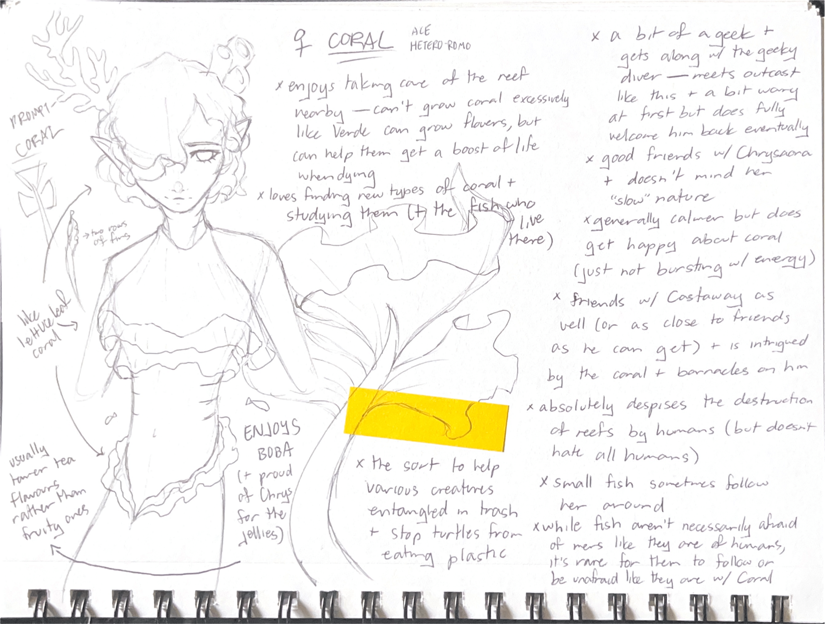 ♀ CORAL
ACE
HETERO-ROMO
PROMPT:
CORAL
x enjoys taking care of the reef
nearby — can't grow coral excessively
like Verde can grow flowers, but
can help them get a boost of life
when dying
x loves finding new types of coral +
studying them (+ the fish who
live
there)
→ two rows
of fins
like
lettuce leaf
coral
ENJOYS
BOBA
(+ proud
of Chrys
for the
jellies)
usually
tea
flavours
rather than
fruity ones
x the sort to help
various creatures
entangled in trash
+ stop turtles from
eating plastic
x a bit of a geek +
gets along w/ the geeky
diver — meets outcast
like this + a bit wary
at first but does fully
welcome him back eventually
x good friends w/ Chrysaora
+ doesn't mind her
"slow" nature
x generally calmer but does
get happy about coral
(just not bursting w/ energy)
x friends w/ Castaway as
well (or as close to friends
as he can get) + is intrigued
by the coral + barnacles on him
x absolutely despises the destruction
of reefs by humans (but doesn't
hate all humans)
x small fish sometimes follow
her around
x while fish aren't necessarily afraid
of mers like they are of humans,
it's rare for them to follow or
be unafraid like they are w/ Coral